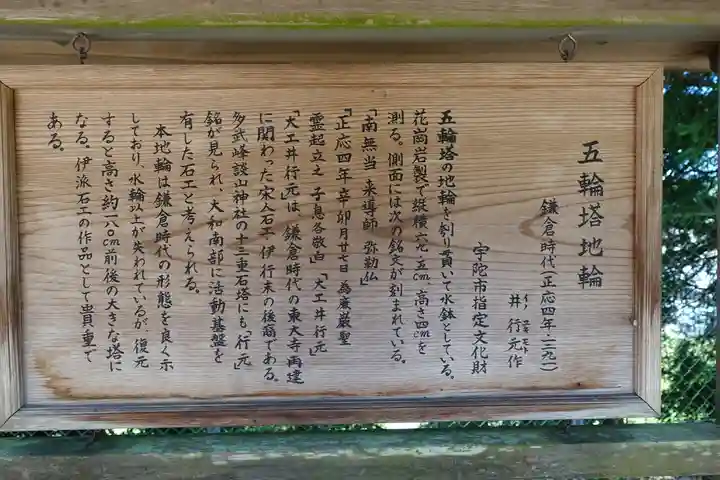 五輪塔地輪
鎌倉時代(正応四年・一二九一)
井行元作
イノ ユキモト
宇陀市指定文化財
五輪塔の地輪を刳り貫いて水鉢としている。
花崗岩製で縦横六六・五cm、高さ四cmを
測る。側面には次の銘文が刻まれている。
「南無当来導師 弥勒仏」
『正応四年辛卯月廿七日 為慶厳聖
霊起立之 子息各敬白 「大工井行元」
「大工井行元」は、鎌倉時代の東大寺再建
に関わった宋人石工 伊行末の後裔である。
多武峰談山神社の十三重石塔にも「行元」
銘が見られ、大和南部に活動基盤を
有した石工と考えられる。
本地輪は鎌倉時代の形態を良く示
しており、水輪以上が失われているが、復元
すると高さ約一八〇cm前後の大きな塔に
なる。伊派石工の作品として貴重で
ある。